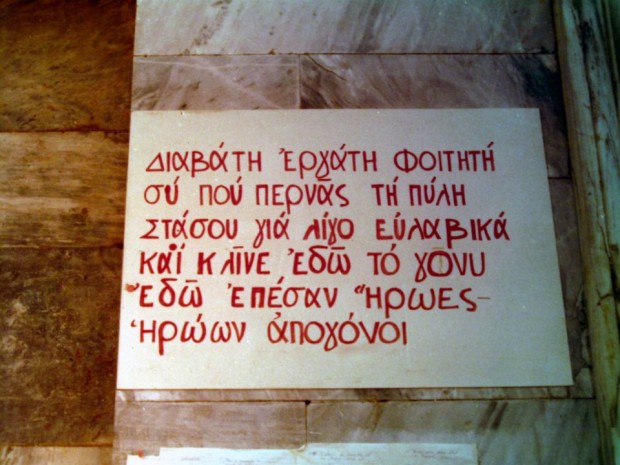 ΔΙΑΒΆΤΗ ἘΡΓΆΤΗ ΦΟΙΤΗΤΉ
ΣΎ ΠΟΎ ΠΕΡΝᾶΣ ΤΉ ΠΎΛΗ
ΣΤΆΣΟΥ ΓΙΆ ΛΊΓΟ ΕΥ̓ΛΑΒΙΚΆ
ΚΑΊ ΚΛῖΝΕ ἘΔῶ ΤΌ ΓΌΝΥ
ἘΔῶ ἜΠΕΣΑΝ ἭΡΩΕΣ-
ἩΡΏΩΝ ἈΠΟΓΌΝΟΙ